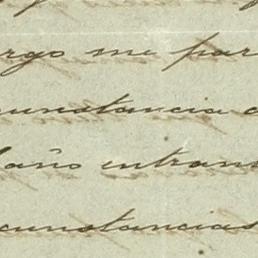 rgo me par
cunstancia
año entran
cunstancias